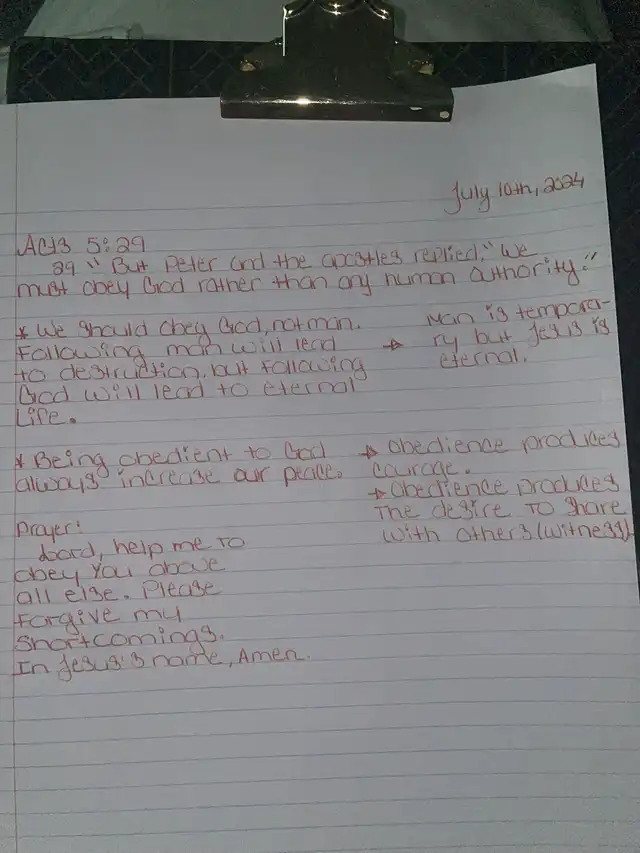 July 10th, 2024
Acts 5:29
29 "But Peter and the apostles replied, "We
must obey God rather than any human authority."
* We should obey God, not man.
Following man will lead
to destruction, but following
God will lead to eternal
Life.
→ Man is tempora-
ry but Jesus is
eternal.
* Being obedient to God
always increase our peace.
→ Obedience produces
courage.
→ Obedience produces
the desire to share
with others (witness)
Prayer:
Lord, help me to
obey You above
all else. Please
Forgive my
shortcomings.
In Jesus's name, Amen.